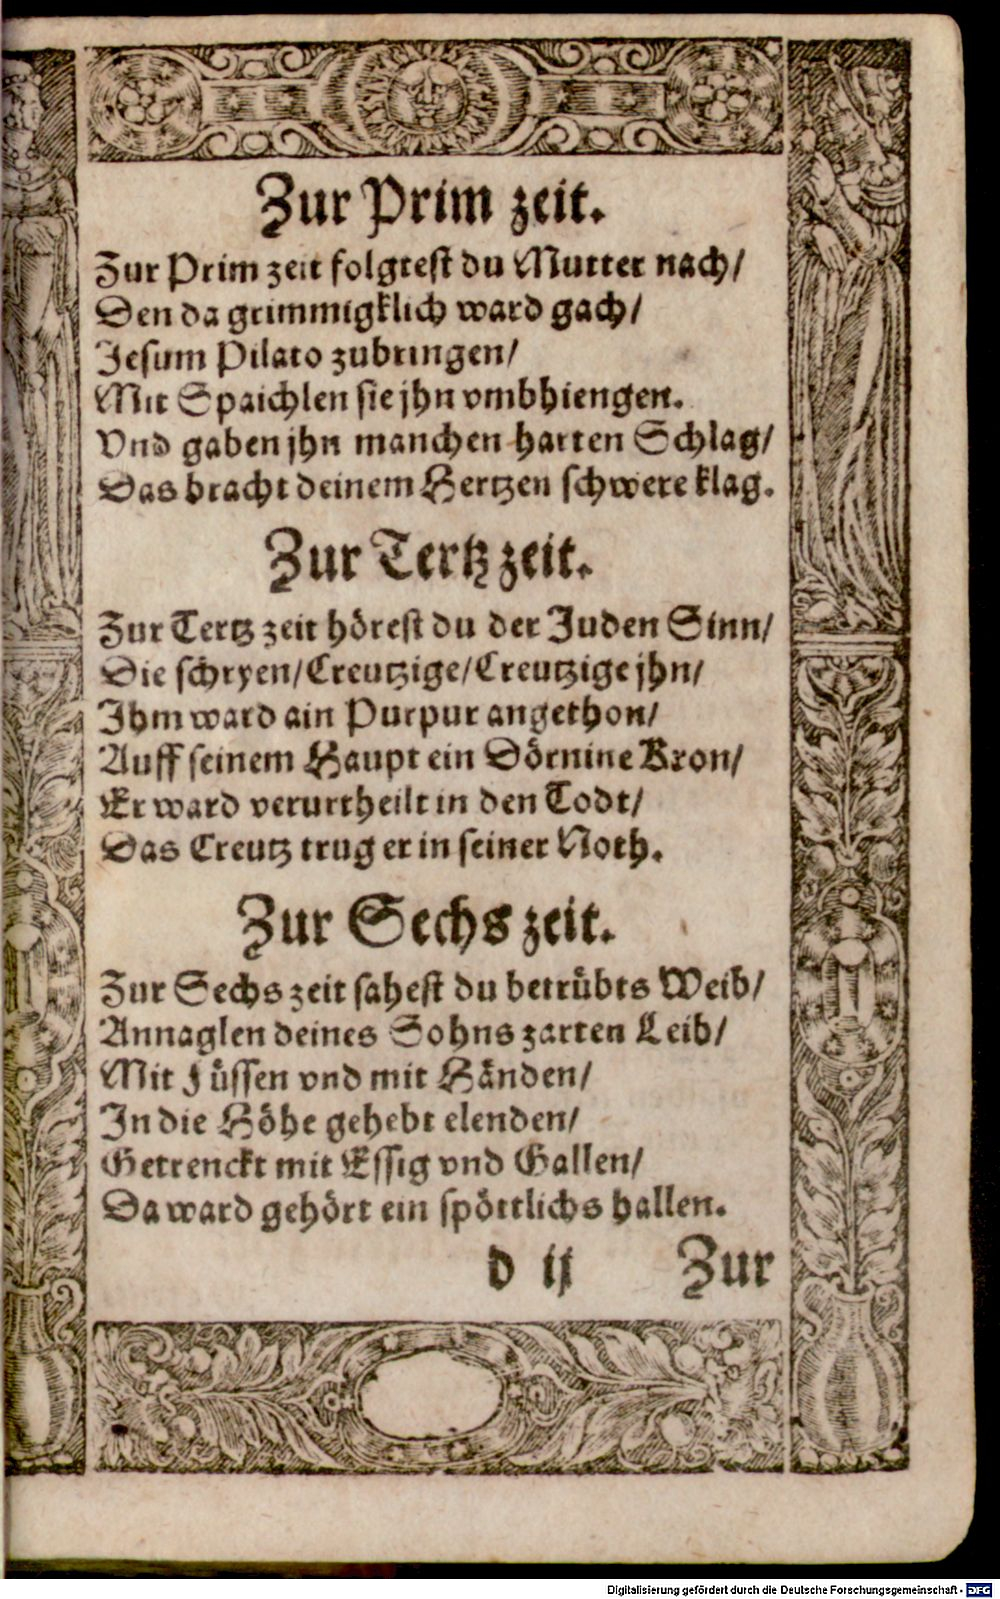 Zur Prim zeit.
Zur Prim zeit folgtest du Mutter nach/
Den da grimmigklich ward gach/
Jesum Pilato zubringen/
Mit Spaichlen sie jhn vmbhiengen.
Vnd gaben jhn manchen harten Schlag/
Das bracht deinem Hertzen schwere klag.
Zur Tertz zeit.
Zur Tertz zeit hörest du der Juden Sinn/
Die schryen/Creutzige/Creutzige jhn/
Ihm ward ain Purpur angethon/
Auff seinem Haupt ein Dörnine Kron/
Er ward verurtheilt in den Todt/
Das Creutz trug er in seiner Noth.
Zur Sechs zeit.
Zur Sechs zeit sahest du betrübts Weib/
Annaglen deines Sohns zarten Leib/
Mit Füssen vnd mit Händen/
In die Höhe gehebt elenden/
Getrenckt mit Essig vnd Gallen/
Da ward gehört ein spöttlichs hallen.
d ij Zur
Digitalisierung gefördert durch die Deutsche Forschungsgemeinschaft - DFG